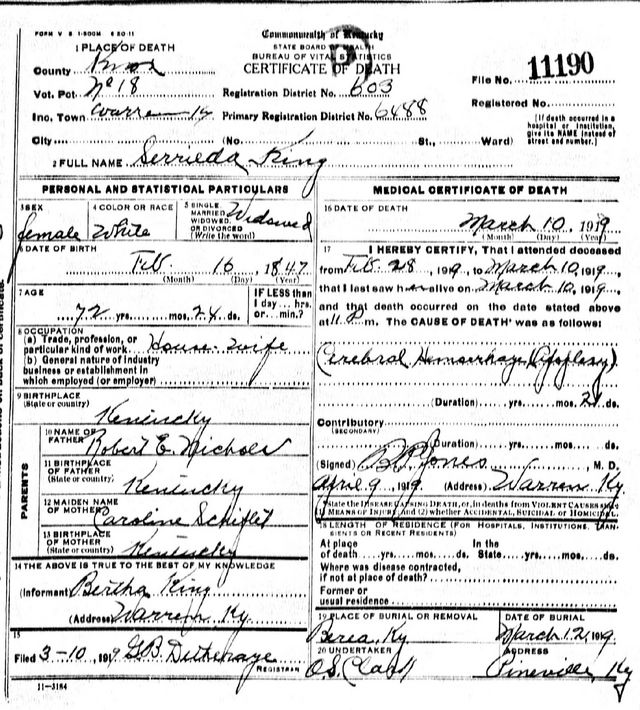 FORM V S 1-500M 6 20-11
Commonwealth of Kentucky
STATE BOARD HEALTH
BUREAU OF VITAL STATISTICS
CERTIFICATE OF DEATH
1 PLACE OF DEATH
County Knox
Vot. Pct No 18
Inc. Town Warren Ky
City
(No. St., Ward)
Registration District No. 603
Primary Registration District No. 6488
File No. 11190
Registered No.
[If death occurred in a hospital or institution, give its NAME instead of street and number.]
2 FULL NAME Serrilda King
PERSONAL AND STATISTICAL PARTICULARS
3 SEX female
4 COLOR OR RACE White
5 SINGLE, MARRIED, WIDOWED, OR DIVORCED (Write the word) Widowed
6 DATE OF BIRTH
Feb. 16, 1847
(Month) (Day) (Year)
7 AGE
72 yrs. mos. 24 ds.
IF LESS than 1 day hrs. or min.?
8 OCCUPATION
(a) Trade, profession, or particular kind of work House-wife
(b) General nature of industry business or establishment in which employed (or employer)
9 BIRTHPLACE
(State or country) Kentucky
PARENTS
10 NAME OF FATHER Robert E. Nichols
11 BIRTHPLACE OF FATHER (State or country) Kentucky
12 MAIDEN NAME OF MOTHER Caroline
13 BIRTHPLACE OF MOTHER (State or country) Kentucky
14 THE ABOVE IS TRUE TO THE BEST OF MY KNOWLEDGE
(Informant) Bertha King
(Address) Warren Ky
15
Filed 3-10, 1919 G.B.
REGISTRAR
11-3184
MEDICAL CERTIFICATE OF DEATH
16 DATE OF DEATH
March 10, 1919
(Month) (Day) (Year)
17 I HEREBY CERTIFY, That I attended deceased
from Feb 28, 1919, to March 10, 1919,
that I last saw her alive on March 10, 1919,
and that death occurred on the date stated above
at 11 P m. The CAUSE OF DEATH was as follows:
Cerebral Hemorrhage (Apoplexy)
(Duration) yrs. mos. ds.
Contributory
(SECONDARY)
(Duration) yrs. mos. ds.
(Signed) Jones, M. D.
April 9, 1919 (Address) Warren Ky.
State the DISEASE CAUSING DEATH, or, in deaths from VIOLENT CAUSES state (1) MEANS OF INJURY; and (2) whether ACCIDENTAL, SUICIDAL or HOMICIDAL.
18 LENGTH OF RESIDENCE (FOR HOSPITALS, INSTITUTIONS, TRANSIENTS OR RECENT RESIDENTS)
At place of death yrs. mos. ds. In the State yrs. mos. ds.
Where was disease contracted, if not at place of death?
Former or usual residence
19 PLACE OF BURIAL OR REMOVAL Berea, Ky
DATE OF BURIAL March 12, 1919
20 UNDERTAKER O.S.
ADDRESS Pineville, Ky